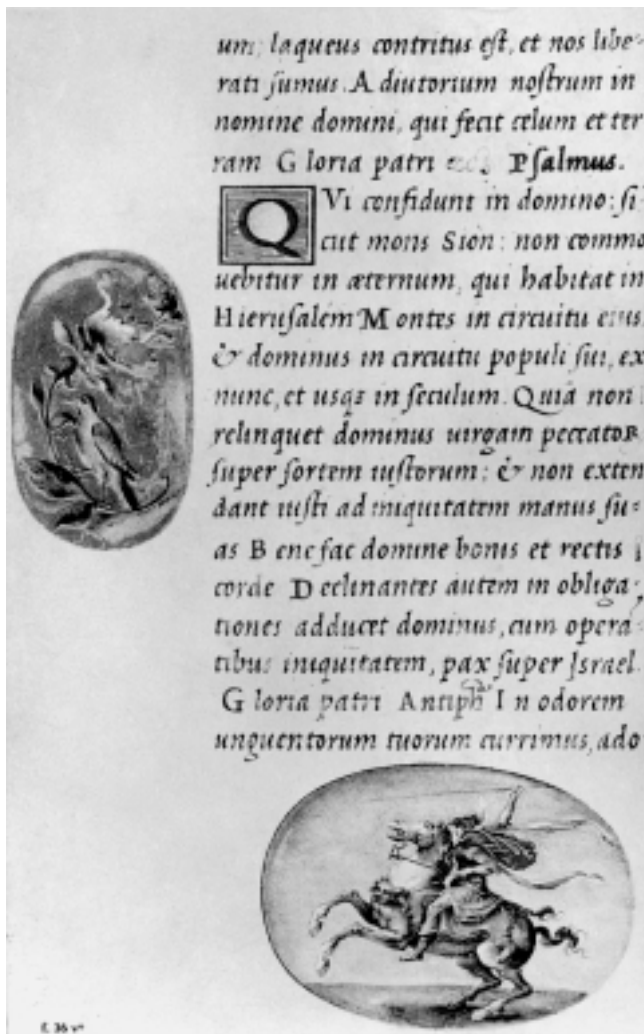 um; laqueus contritus est, et nos libe-
rati sumus. Adiutorium nostrum in
nomine domini, qui fecit celum et ter
ram Gloria patri Psalmus.
QVi confidunt in domino: si-
cut mons Sion: non commo
uebitur in æternum, qui habitat in
Hierusalem Montes in circuitu eius,
& dominus in circuitu populi sui, ex
nunc, et usqȝ in seculum. Quia non
relinquet dominus uirgam peccatoꝝ
super sortem iustorum: & non exten
dant iusti ad iniquitatem manus su-
as Benefac domine bonis et rectis
corde Declinantes autem in obliga-
tiones adducet dominus, cum opera-
tibus iniquitatem, pax super Israel.
Gloria patri Antiph In odorem
unguentorum tuorum currimus, ado
f. 36 vº